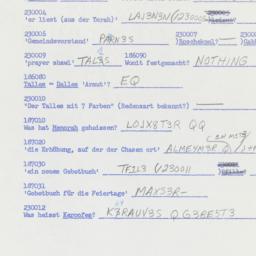 230004
'er liest (aus der Torah)' LAJ3N3N (√23000
230005 230007
'Gemeindevorstand' PARN3S
230009 186090
'prayer shawl' TAL3S Womit festgemacht? NOTHING
186080
Talles = Dalles 'Armut'? EQ
230010
"Der Talles mit 7 Farben" (Redensart bekannt?)
187010
Was hat Menorah geheissen? LOJX8T3R QQ
187020
'die Erhöhung, auf der der Chasen ort' ALMEYM3R
187030
'ein neues Gebetbuch' TFIL3 (√230011
187031
'Gebetbuch für die Feiertage' MAXS3R-
230012
Was heisst Keroofes? K3RAUV3S Q G3BE5T3